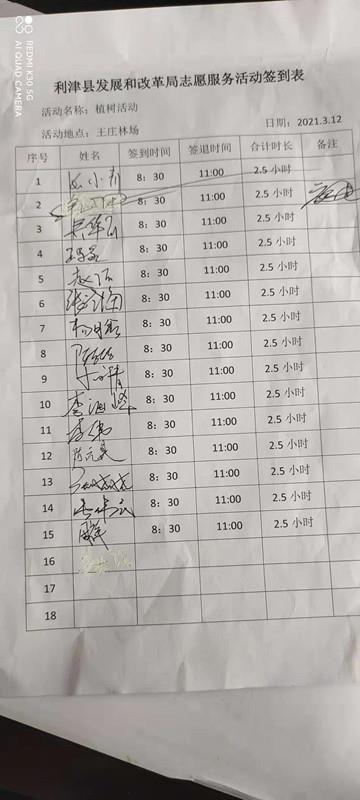 REDMI K30 5G
AI QUAD CAMERA
利津县发展和改革局志愿服务活动签到表
活动名称：植树活动
活动地点：王庄林场 日期：2021.3.12
序号 姓名 签到时间 签退时间 合计时长 备注
1 8：30 11:00 2.5 小时
2 8：30 11:00 2.5 小时
3 8：30 11:00 2.5 小时
4 8：30 11:00 2.5 小时
5 8：30 11:00 2.5 小时
6 8：30 11:00 2.5 小时
7 8：30 11:00 2.5 小时
8 8：30 11:00 2.5 小时
9 8：30 11:00 2.5 小时
10 8：30 11:00 2.5 小时
11 李伟 8：30 11:00 2.5 小时
12 8：30 11:00 2.5 小时
13 8：30 11:00 2.5 小时
14 8：30 11:00 2.5 小时
15 8：30 11:00 2.5 小时
16
17
18